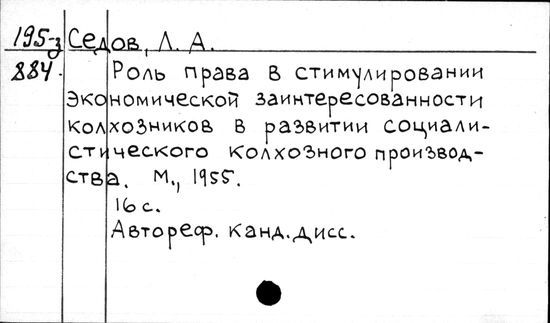 195-з Седов, Л. А.
884. Роль права в стимулировании
экономической заинтересованности
колхозников в развитии социали-
стического колхозного производ-
ства. М., 1955.
16 с.
Автореф. канд. дисс.